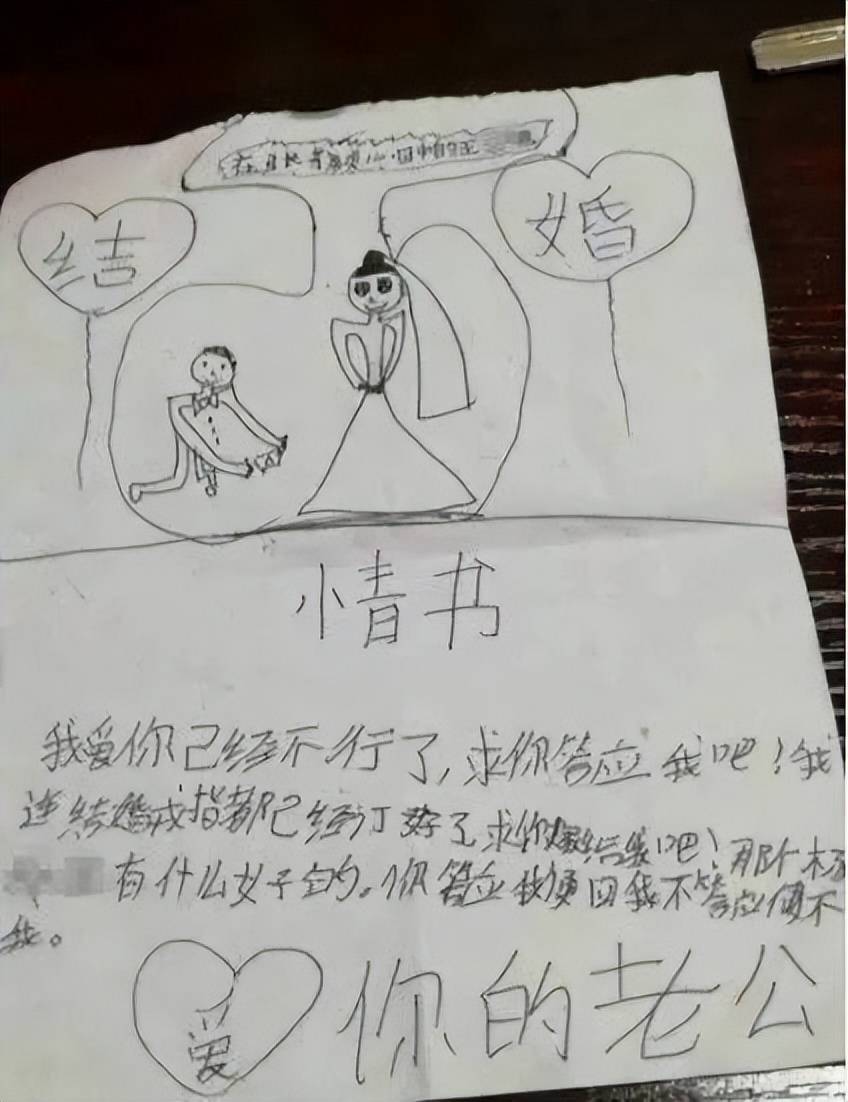 结 婚
情书
我爱你已经不行了,求你答应我吧!我
连结婚戒指都已经订好了,求你结婚吧!那个
有什么好的。你答应我便回我不答应便不
我。
爱 你的老公